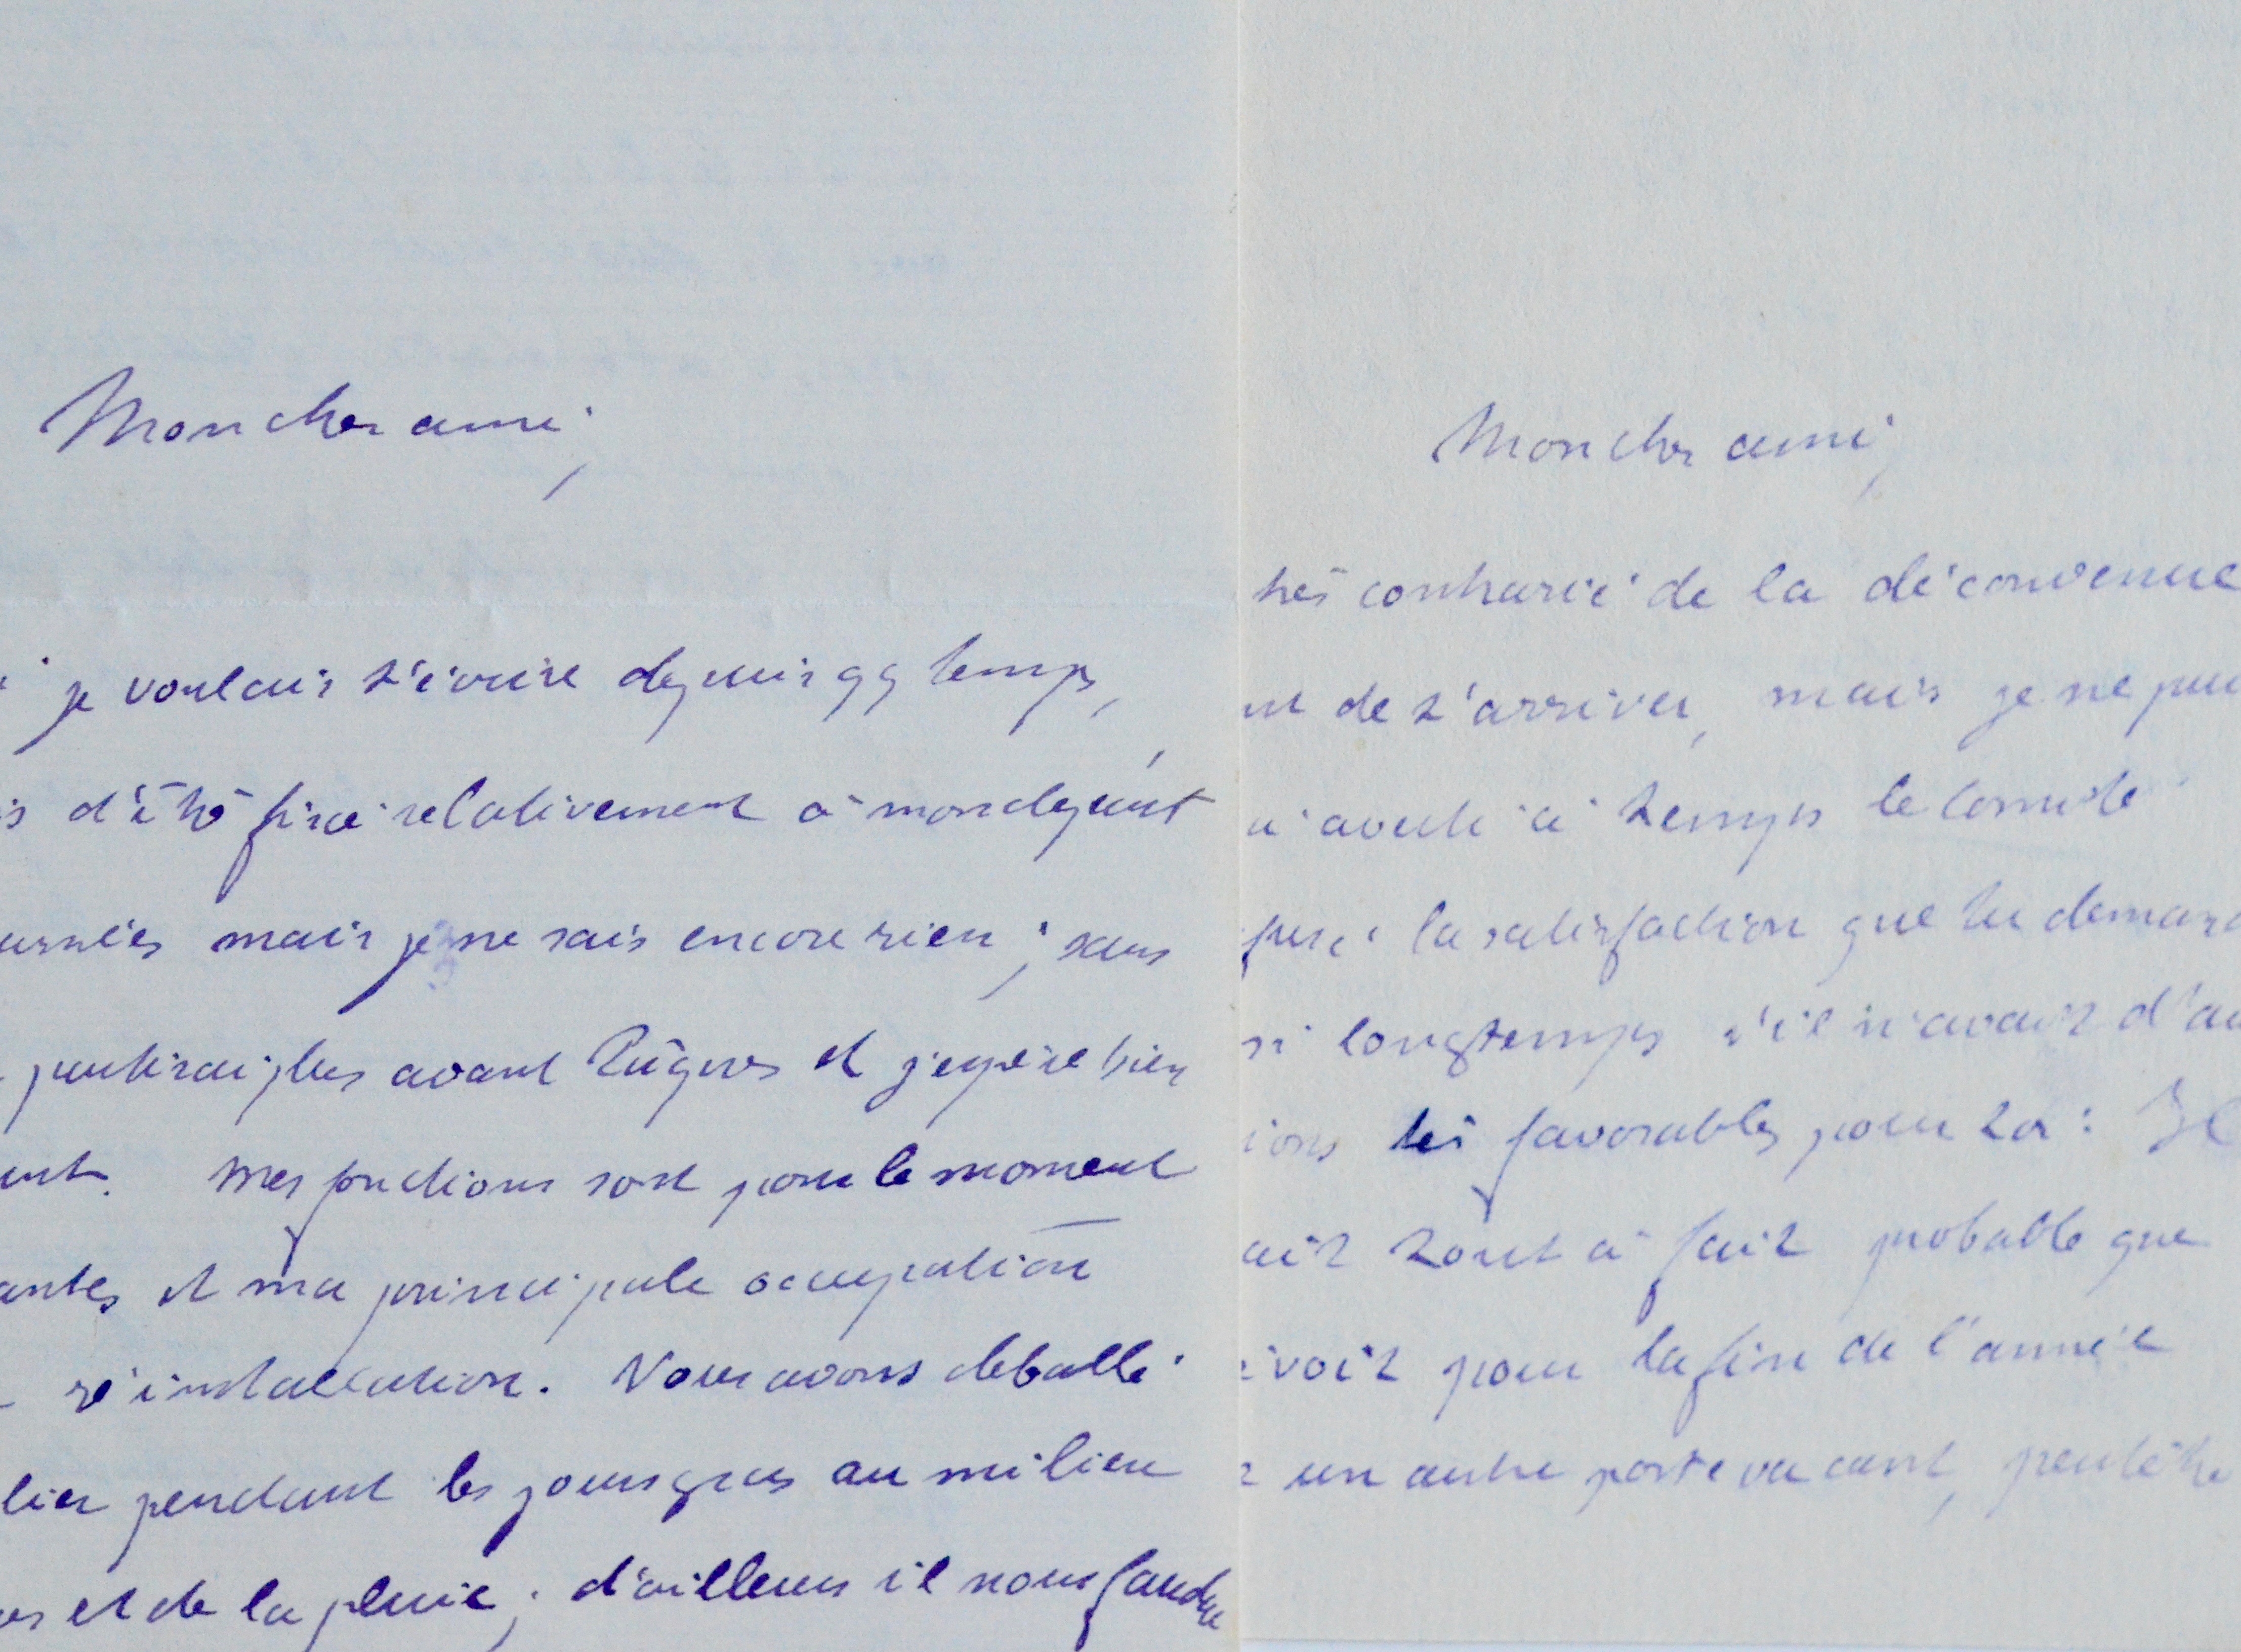 Mon cher ami,
je voulais t'écrire depuis qq temps,
d'être fixé relativement à mon départ
mais je ne sais encore rien ; sans
partirai plus avant Pâques et j'espère bien
Mes fonctions sont pour le moment
et ma principale occupation
réinstallation. Nous avons deballé
pendant les jours gras au milieu
et de la pluie ; d'ailleurs il nous faudra
Mon cher ami,
très contrarié de la déconvenue
de t'arriver, mais je ne puis
averti à temps le comité
la satisfaction que tu demand
si longtemps s'il n'avait d'au
très favorables pour toi : Il
tout à fait probable que
pour la fin de l'année
un autre poste vacant, peut être